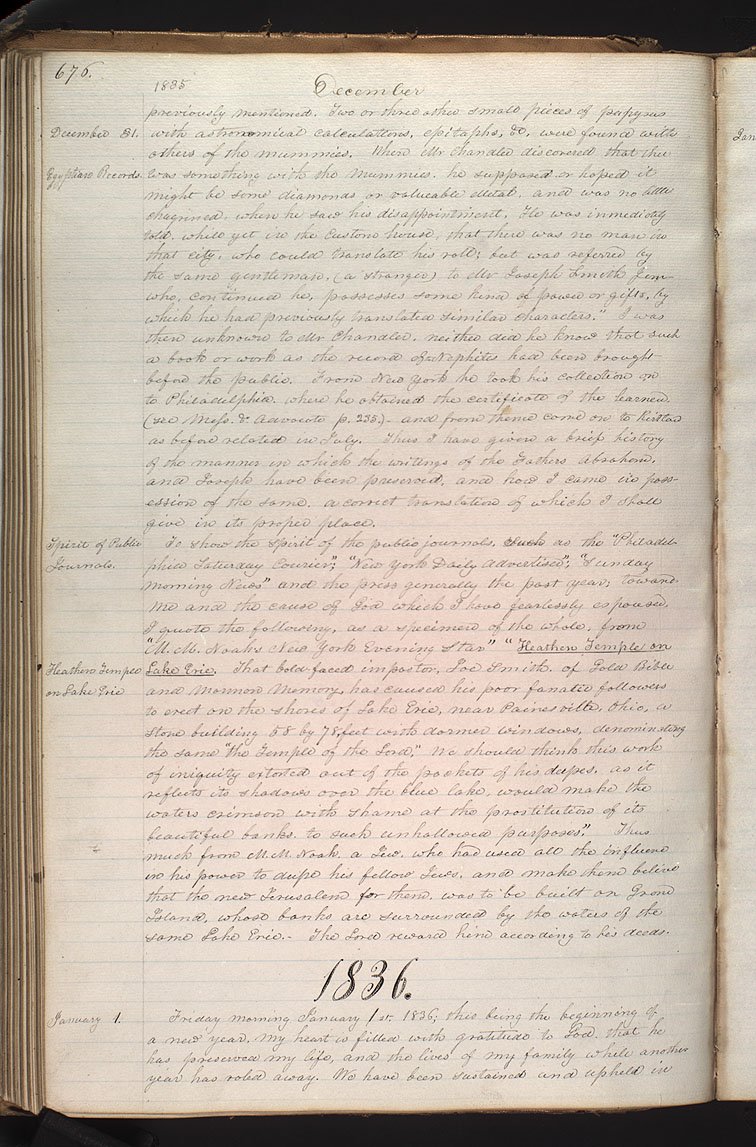 676.
1835
December
previously mentioned. Two or three other small pieces of papyrus
December 31.
with astronomical calculations, epitaphs, &c. were found with
others of the mummies. When Mr Chandler discovered that there
Egyptian Records.
was something with the mummies, he supposed or hoped it
might be some diamonds or valueable metal, and was no little
chagrined, when he saw his disappointment. He was immediately
told, while yet in the Custom house, that there was no man in
that city, who could translate his roll; but was referred by
the same gentleman, (a stranger) to Mr Joseph Smith Jun—
who, continued he, possesses some kind of power or gifts, by
which he had previously translated similar characters." I was
then unknown to Mr Chandler, neither did he know that such
a book or work as the record of Nephites had been brought
before the public. From New York he took his collection on
to Philadelphia, where he obtained the certificate of the learned.
(see Mess. & Advocate p. 235.)— and from thence came on to Kirtland
as before related in July. Thus I have given a brief history
of the manner in which the writings of the Fathers Abraham,
and Joseph have been preserved, and how I came in poss-
ession of the same, a correct translation of which I shall
give in its proper place.
Spirit of Public
Journals.
To show the spirit of the public journals, such as the "Philadel-
phia Saturday Courier;" "New York Daily Advertiser"; "Sunday
Morning News" and the press generally the past year; towards
me and the cause of God which I have fearlessly espoused,
I quote the following, as a specimen of the whole, from
"M. M. Noah's New York Evening Star" "Heathen Temple on
Heathen Temple
on Lake Erie
Lake Erie. That bold-faced impostor, Joe Smith, of Gold Bible
and Mormon Memory, has caused his poor fanatic followers
to erect on the shores of Lake Erie, near Painesville, Ohio, a
stone building 58 by 78 feet with dormer windows, denominating
the same "the Temple of the Lord." We should think this work
of iniquity extorted out of the pockets of his dupes, as it
reflects its shadows over the blue lake, would make the
waters crimson with shame at the prostitution of its
beautiful banks, to such unhallowed purposes". Thus
much from M. M. Noah, a Jew, who had used all the influence
in his power to dupe his fellow Jews, and make them believe
that the new Jerusalem for them, was to be built on Grand
Island, whose banks are surrounded by the waters of the
same Lake Erie.— The Lord reward him according to his deeds.
1836.
January 1.
Friday morning January 1st 1836; this being the beginning of
a new year, my heart is filled with gratitude to God, that he
has preserved my life, and the lives of my family while another
year has roled away. We have been sustained and upheld in
Jan